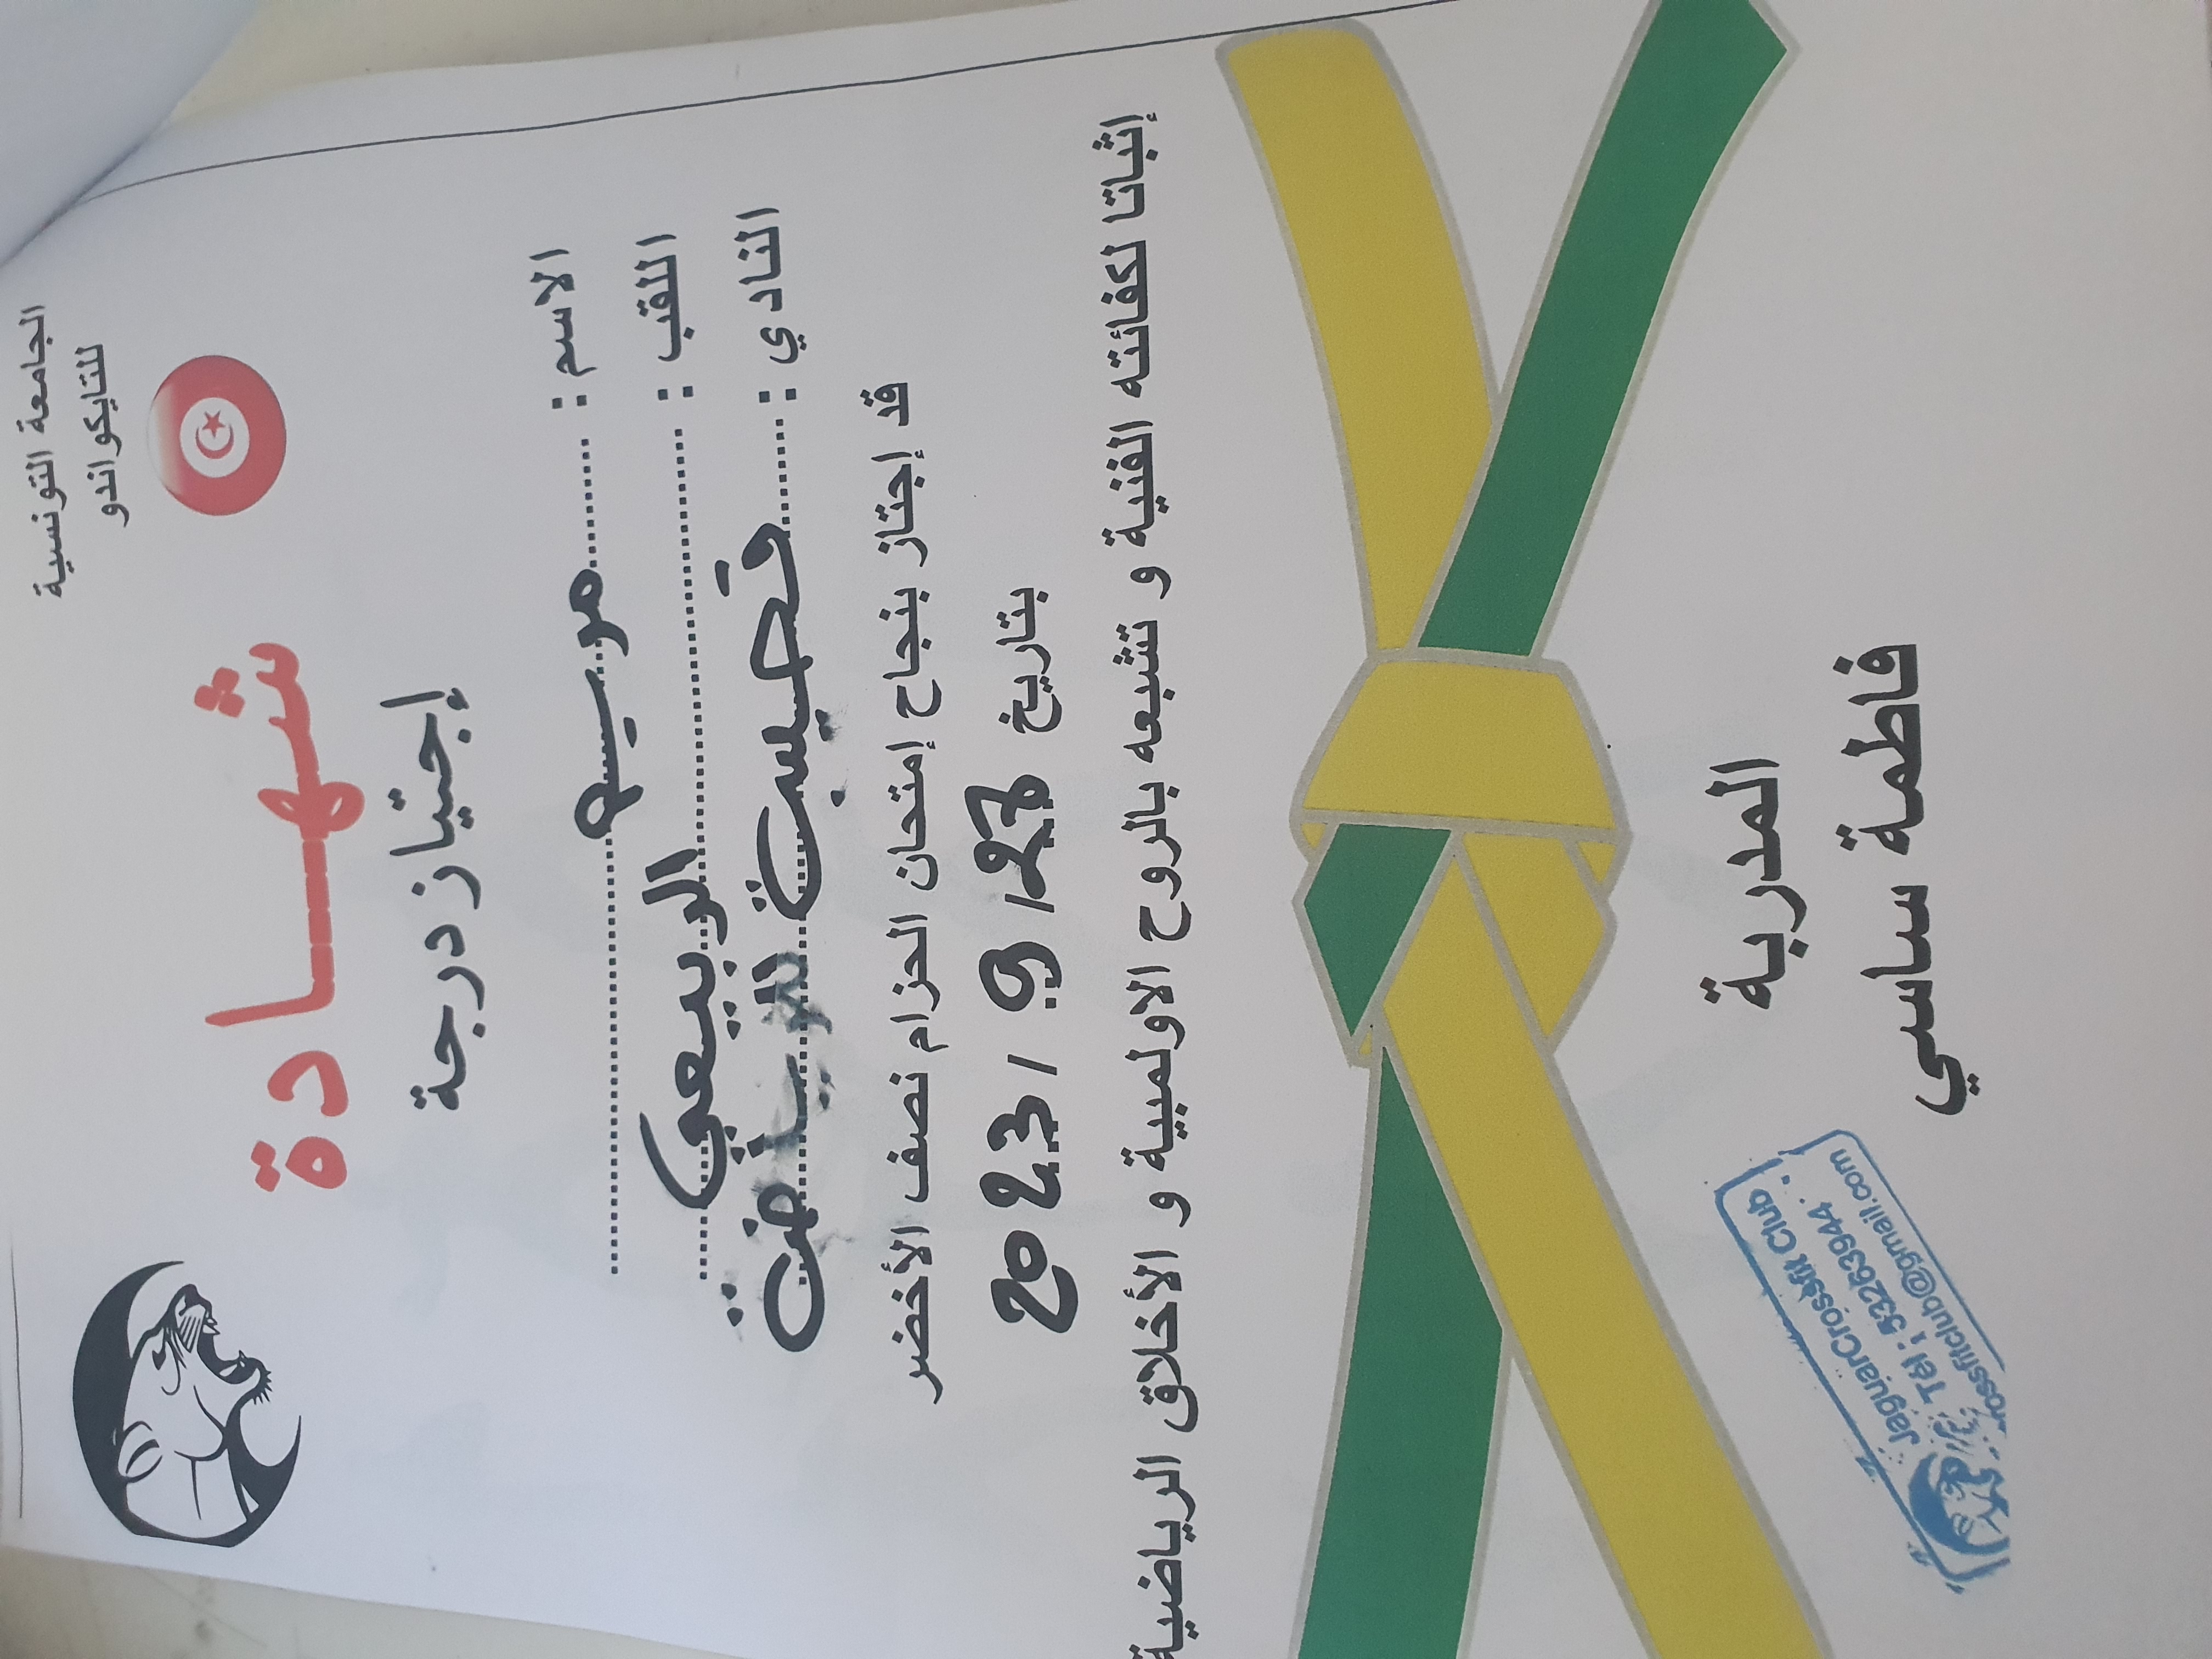 الجامعة التونسية
للتايكواندو
شهــادة
إجتياز درجة
الاسم : مريم
اللقب : الربيعي
النادي : قصيبة للرياضة
قد إجتاز بنجاح إمتحان الحزام نصف الأخضر
بتاريخ 2023 / 9 /
إثباتا لكفائته الفنية و تشبعه بالروح الاولمبية و الأخلاق الرياضية
المدربة
فاطمة ساسي
JaguarCrossfit Club
Tél : 53263944
rossfitclub@gmail.com